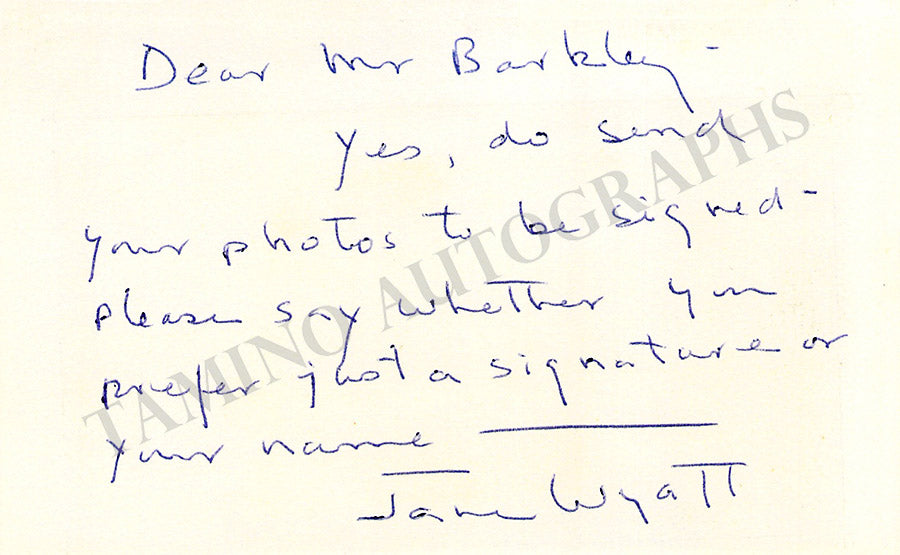 Dear Mr Barkley -
Yes, do send
your photos to be signed -
please say whether you
prefer just a signature or
your name
Jane Wyatt
TAMINO AUTOGRAPHS